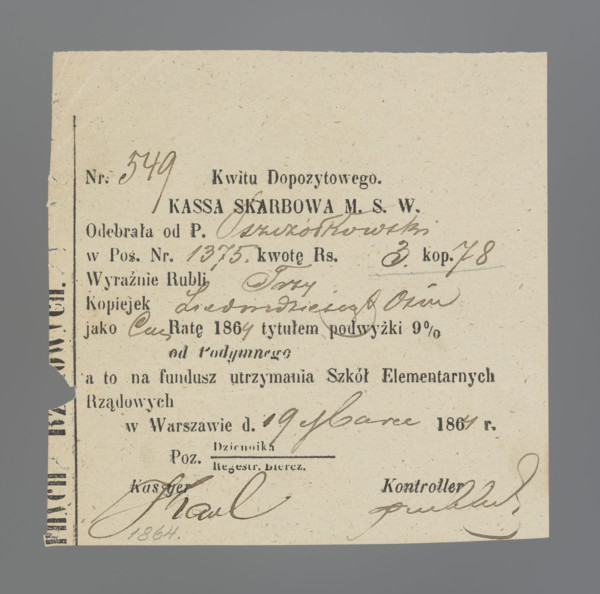 Nr. 549 Kwitu Dopozytowego.
KASSA SKARBOWA M. S. W.
Odebrała od P. Pszczółkowski
w Pos. Nr. 1375. kwotę Rs. 3. kop. 78
Wyraźnie Rubli Trzy
Kopiejek Siedmdziesiąt Ośm
jako Ratę 1864 tytułem podwyżki 9%
od Podymnego
a to na fundusz utrzymania Szkół Elementarnych
Rządowych
w Warszawie d. 19 Marca 1864 r.
Poz. Dziennika
Regestr. Biercz.
Kassyer Kontroller
1864.